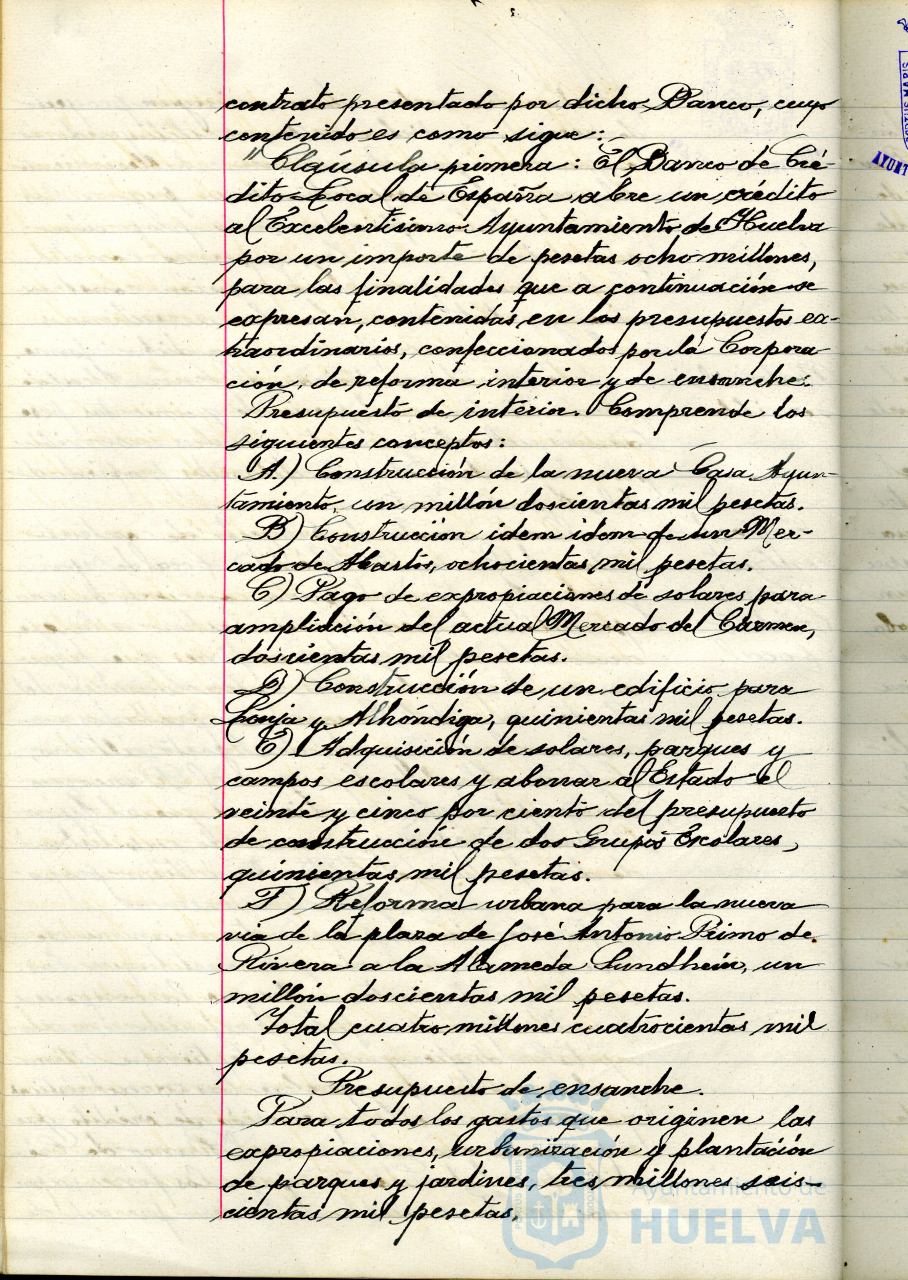 contrato presentado por dicho Banco, cuyo
contenido es como sigue:
"Claúsula primera: El Banco de Cré-
dito Local de España abre un crédito
al Excelentísimo Ayuntamiento de Huelva
por un importe de pesetas ocho millones,
para las finalidades que a continuación se
expresan, contenidas en los presupuestos ex-
traordinarios, confeccionados por la Corpora
ción, de reforma interior y de ensanche.
Presupuesto de interior. Comprende los
siguientes conceptos:
A.) Construcción de la nueva Casa Ayun-
tamiento, un millón doscientas mil pesetas.
B) Construcción idem idem de un Mer-
cado de Abastos, ochocientas mil pesetas.
C) Pago de expropiaciones de solares para
ampliación del actual Mercado del Carmen,
doscientas mil pesetas.
D) Construcción de un edificio para
Lonja y Alhóndiga, quinientas mil pesetas.
E) Adquisición de solares, parques y
campos escolares y abonar al Estado el
veinte y cinco por ciento del presupuesto
de construcción de dos Grupos Escolares,
quinientas mil pesetas.
F) Reforma urbana para la nueva
via de la plaza de José Antonio Primo de
Rivera a la Alameda Sundheim, un
millón doscientas mil pesetas.
Total cuatro millones cuatrocientas mil
pesetas.
Presupuesto de ensanche.
Para todos los gastos que originen las
expropiaciones, urbanización y plantación
de parques y jardines, tres millones seis-
cientas mil pesetas.
Ayuntamiento de
HUELVA
AYUNT